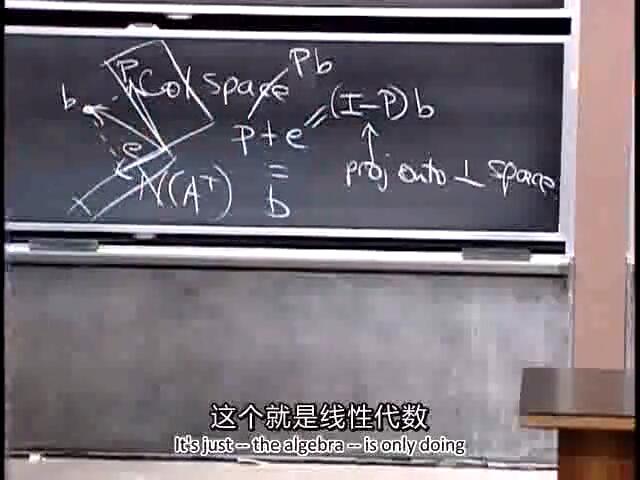 Pb
p
Col space
b
(I-P)b
p+e =
e
=
N(Aᵀ)
b
proj onto ⊥ space
这个就是线性代数
It's just -- the algebra -- is only doing